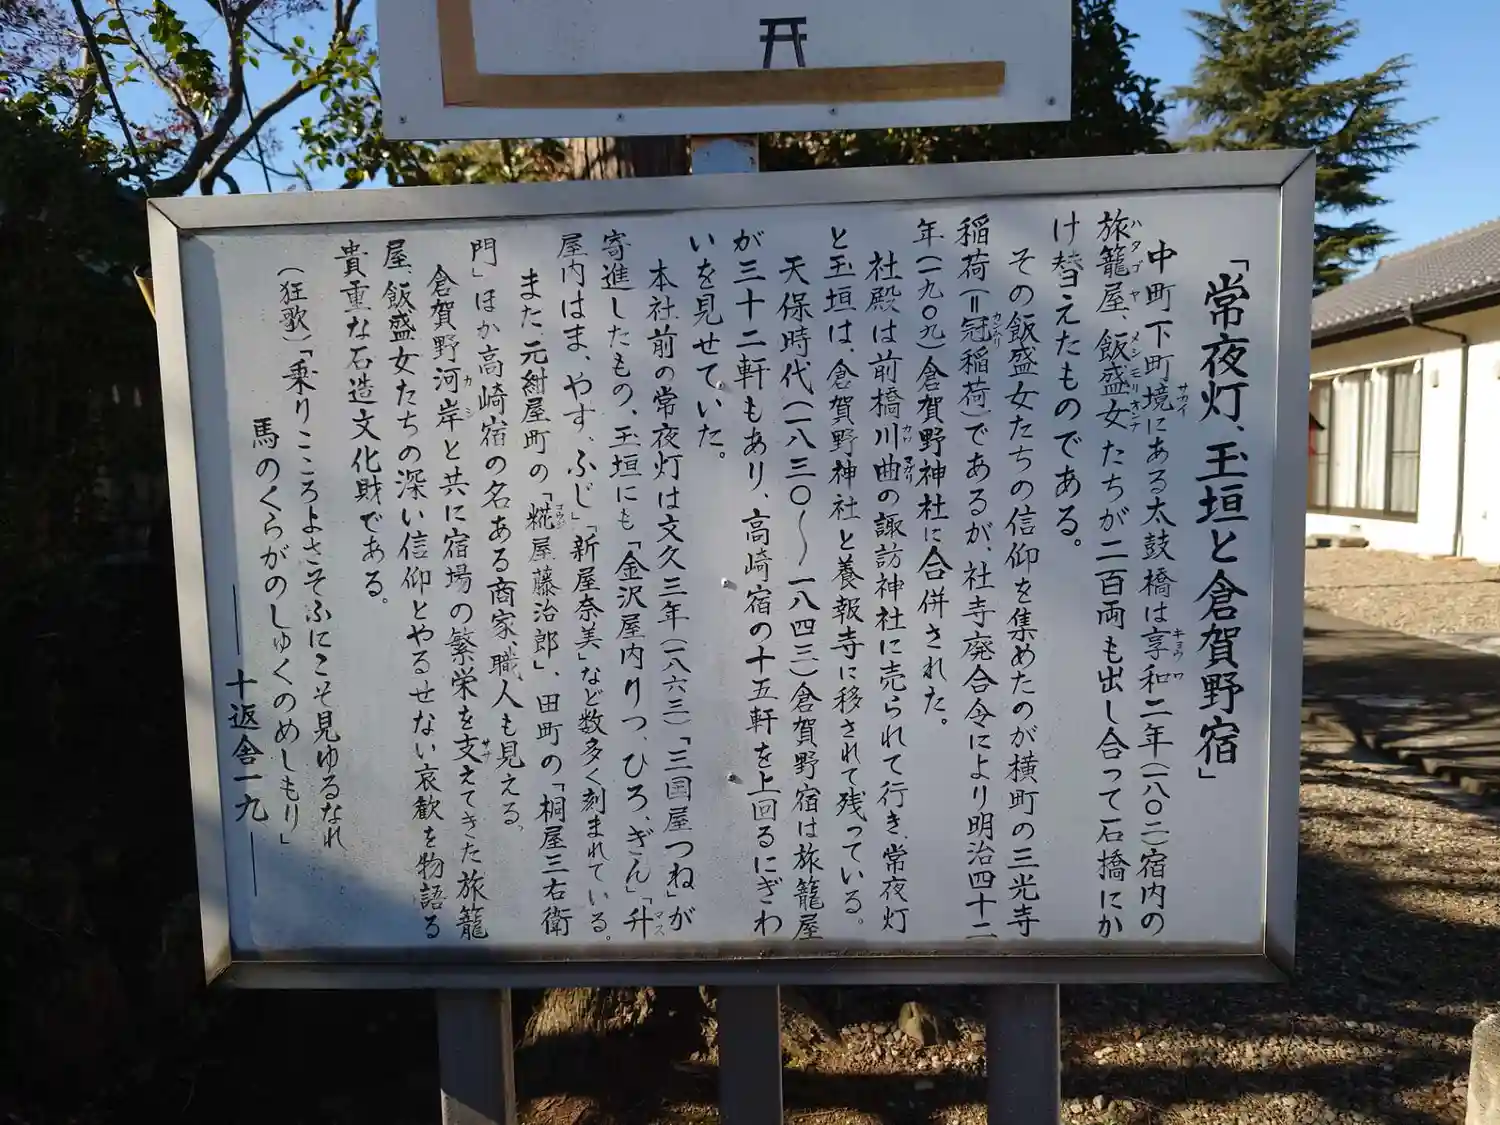 「常夜灯、玉垣と倉賀野宿」
中町下町境にある太鼓橋は享和二年(一八〇二)宿内の
旅籠屋、飯盛女たちが二百両も出し合って石橋にか
け替えたものである。
その飯盛女たちの信仰を集めたのが横町の三光寺
稲荷(=冠稲荷)であるが、社寺廃合令により明治四十二
年(一九〇九)倉賀野神社に合併された。
社殿は前橋川曲の諏訪神社に売られて行き、常夜灯
と玉垣は、倉賀野神社と養報寺に移されて残っている。
天保時代(一八三〇〜一八四三)倉賀野宿は旅籠屋
が三十二軒もあり、高崎宿の十五軒を上回るにぎわ
いを見せていた。
本社前の常夜灯は文久三年(一八六三)「三国屋つね」が
寄進したもの、玉垣にも「金沢屋内りつ、ひろ、ぎん」「升
屋内はま、やす、ふじ」「新屋奈美」など数多く刻まれている。
また、元紺屋町の「糀屋藤治郎」、田町の「桐屋三右衛
門」ほか高崎宿の名ある商家、職人も見える。
倉賀野河岸と共に宿場の繁栄を支えてきた旅籠
屋、飯盛女たちの深い信仰とやるせない哀歓を物語る
貴重な石造文化財である。
(狂歌)「乗りこころよさそふにこそ見ゆるなれ
馬のくらがのしゅくのめしもり」
――十返舎一九――